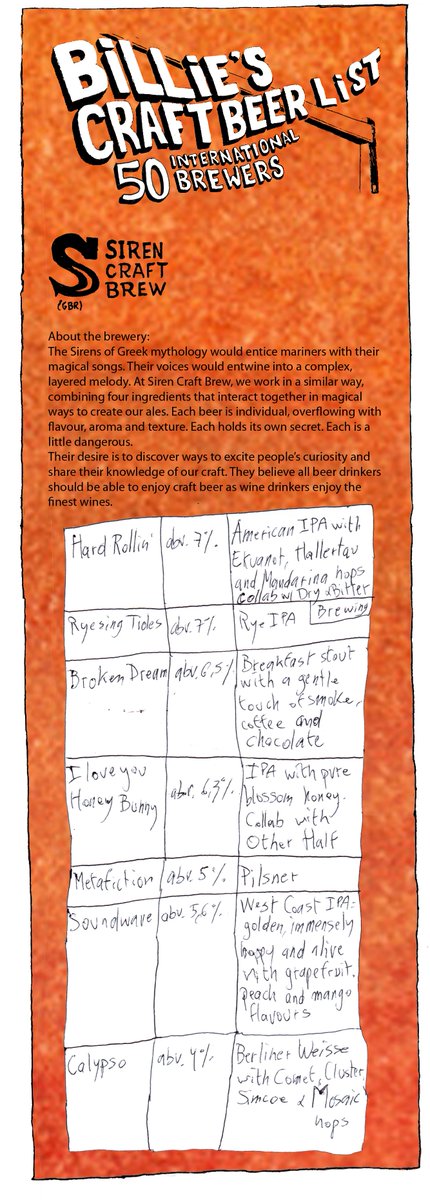 BILLIE'S
CRAFT BEER LIST
50 INTERNATIONAL
BREWERS
S SIREN
CRAFT
BREW
(GBR)
About the brewery:
The Sirens of Greek mythology would entice mariners with their
magical songs. Their voices would entwine into a complex,
layered melody. At Siren Craft Brew, we work in a similar way,
combining four ingredients that interact together in magical
ways to create our ales. Each beer is individual, overflowing with
flavour, aroma and texture. Each holds its own secret. Each is a
little dangerous.
Their desire is to discover ways to excite people's curiosity and
share their knowledge of our craft. They believe all beer drinkers
should be able to enjoy craft beer as wine drinkers enjoy the
finest wines.
Hard Rollin' abv. 7% American IPA with
Ekuanot, Hallertau
and Mandarina hops
collab w/ Dry & Bitter
Brewing
Ryesing Tides abv. 7% Rye IPA
Broken Dream abv. 6,5% Breakfast stout
with a gentle
touch of smoke,
coffee and
chocolate
I love you
Honey Bunny abv. 6,3% IPA with pure
blossom honey.
Collab with
Other Half
Metafiction abv. 5% Pilsner
Soundwave abv. 5,6% West Coast IPA:
golden, immensely
hoppy and alive
with grapefruit,
peach and mango
flavours
Calypso abv. 4% Berliner Weisse
with Comet, Cluster,
Simcoe & Mosaic
hops